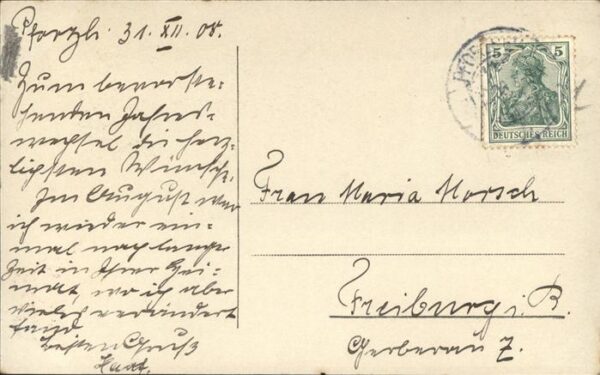 Pforzh. 31. XII. 08.
Zum bevorste-
henden Jahres-
wechsel die herz-
lichsten Wünsche.
Im August war
ich wieder ein-
mal nach langer
Zeit in Ihrer Hei-
mat, wo ich aber
vieles verändert
fand
Besten Gruß
5 5
DEUTSCHES REICH
Frau Maria Morsch
Freiburg i. B.
Gerberau 7.